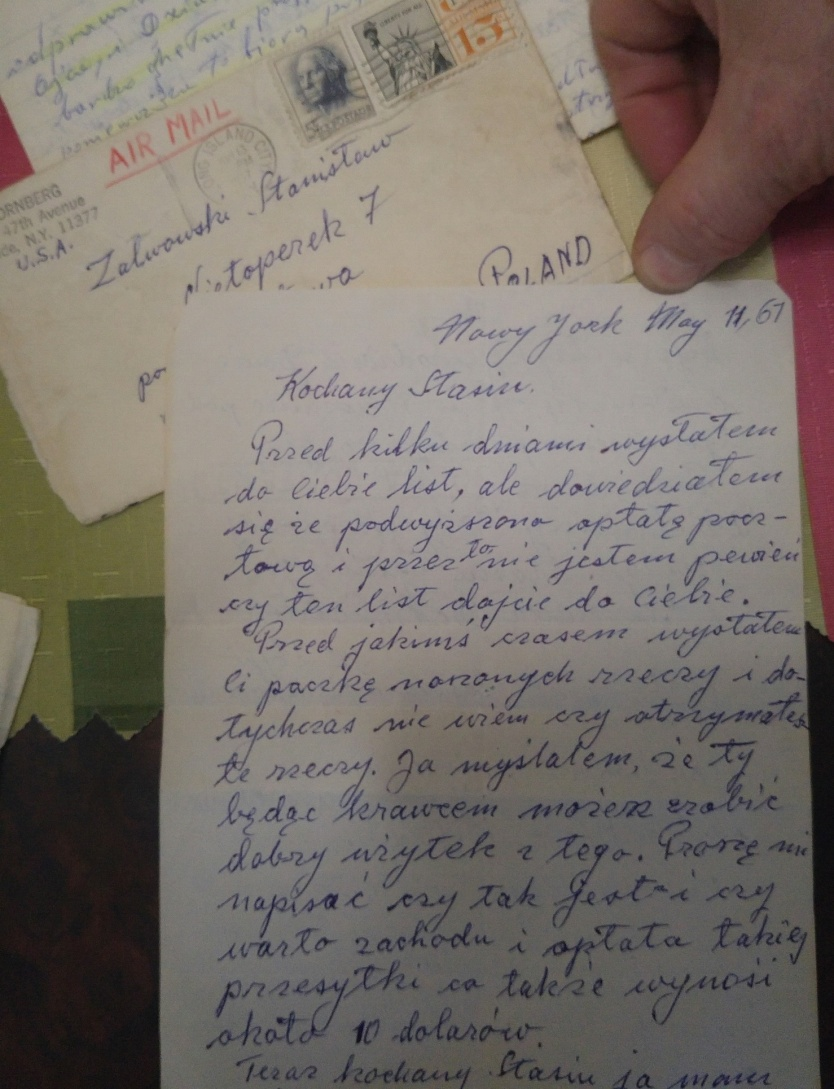 odpraw
Ojca i
bardzo chętnie
to biorę
LIBERTY FOR ALL
15
AIR MAIL
LONG ISLAND CITY
ORNBERG
47th Avenue
N.Y. 11377
U.S.A.
Zalwowski Stanisław
Nietoperek 7
POLAND
Nowy York May 11, 67
Kochany Stasiu.
Przed kilku dniami wysłałem
do Ciebie list, ale dowiedziałem
się że podwyższono opłatę pocz-
tową i przez to nie jestem pewień
czy ten list dojcie do Ciebie.
Przed jakimś czasem wysłałem
Ci paczkę noszonych rzeczy i do-
tychczas nie wiem czy otrzymałeś
te rzeczy. Ja myślałem, że ty
będąc krawcem możesz zrobić
dobry użytek z tego. Proszę mi
napisać czy tak jest i czy
warto zachodu i opłata takiej
przesyłki co także wynosi
około 10 dolarów.
Teraz kochany Stasiu ja mam